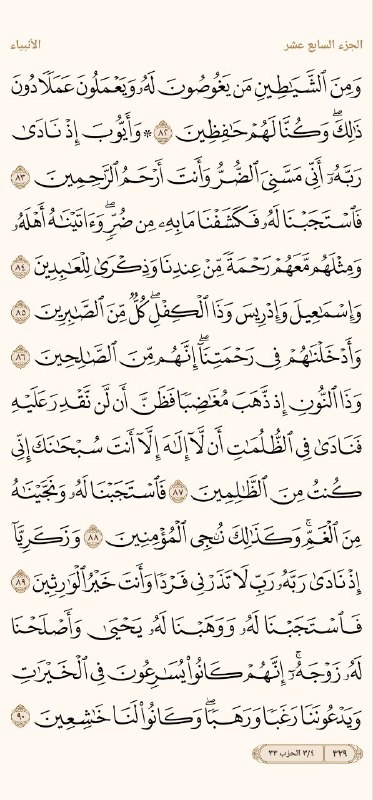 الجزء السابع عشر الأنبياء
وَمِنَ ٱلشَّيَٰطِينِ مَن يَغُوصُونَ لَهُۥ وَيَعْمَلُونَ عَمَلًا دُونَ
ذَٰلِكَۖ وَكُنَّا لَهُمْ حَٰفِظِينَ ٨٢ ۞ وَأَيُّوبَ إِذْ نَادَىٰ
رَبَّهُۥٓ أَنِّي مَسَّنِيَ ٱلضُّرُّ وَأَنتَ أَرْحَمُ ٱلرَّٰحِمِينَ ٨٣
فَٱسْتَجَبْنَا لَهُۥ فَكَشَفْنَا مَا بِهِۦ مِن ضُرٍّۖ وَءَاتَيْنَٰهُ أَهْلَهُۥ
وَمِثْلَهُم مَّعَهُمْ رَحْمَةً مِّنْ عِندِنَا وَذِكْرَىٰ لِلْعَٰبِدِينَ ٨٤
وَإِسْمَٰعِيلَ وَإِدْرِيسَ وَذَا ٱلْكِفْلِۖ كُلٌّ مِّنَ ٱلصَّٰبِرِينَ ٨٥
وَأَدْخَلْنَٰهُمْ فِي رَحْمَتِنَآۖ إِنَّهُم مِّنَ ٱلصَّٰلِحِينَ ٨٦
وَذَا ٱلنُّونِ إِذ ذَّهَبَ مُغَٰضِبًا فَظَنَّ أَن لَّن نَّقْدِرَ عَلَيْهِ
فَنَادَىٰ فِي ٱلظُّلُمَٰتِ أَن لَّآ إِلَٰهَ إِلَّآ أَنتَ سُبْحَٰنَكَ إِنِّي
كُنتُ مِنَ ٱلظَّٰلِمِينَ ٨٧ فَٱسْتَجَبْنَا لَهُۥ وَنَجَّيْنَٰهُ
مِنَ ٱلْغَمِّۚ وَكَذَٰلِكَ نُۨجِي ٱلْمُؤْمِنِينَ ٨٨ وَزَكَرِيَّآ
إِذْ نَادَىٰ رَبَّهُۥ رَبِّ لَا تَذَرْنِي فَرْدًا وَأَنتَ خَيْرُ ٱلْوَٰرِثِينَ ٨٩
فَٱسْتَجَبْنَا لَهُۥ وَوَهَبْنَا لَهُۥ يَحْيَىٰ وَأَصْلَحْنَا
لَهُۥ زَوْجَهُۥٓۚ إِنَّهُمْ كَانُوا۟ يُسَٰرِعُونَ فِي ٱلْخَيْرَٰتِ
وَيَدْعُونَنَا رَغَبًا وَرَهَبًاۖ وَكَانُوا۟ لَنَا خَٰشِعِينَ ٩٠
٣٢٩ ٣/٤ الحزب ٣٣